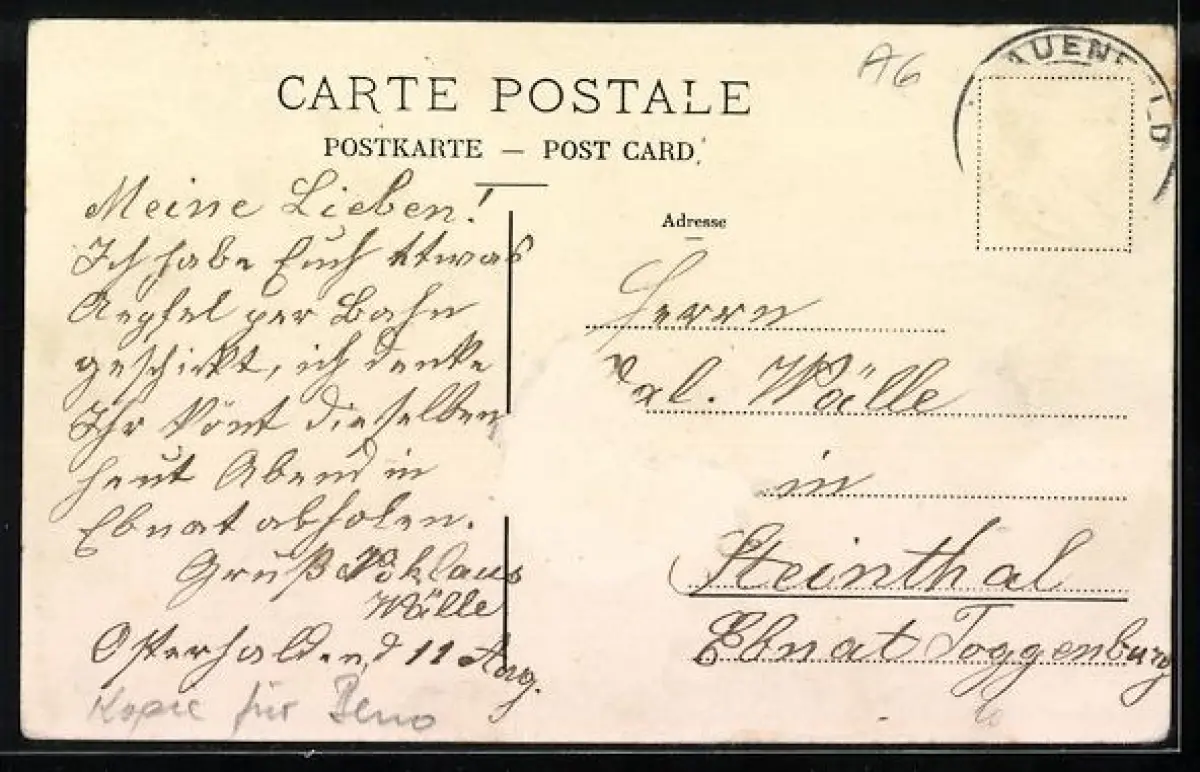 A6
AUENF LD
CARTE POSTALE
POSTKARTE — POST CARD
Meine Lieben!
Ich habe Euch ettwas
Aepfel per Bahn
geschikt, ich denke
Ihr könt dieselben
heut Abend in
Ebnat abholen.
Gruß Niklaus
Wälle
Osterhalden, d 11 Aug.
Kopie für Beno
Adresse
Herrn
Wälle
in
Steinthal
Ebnat Toggenburg